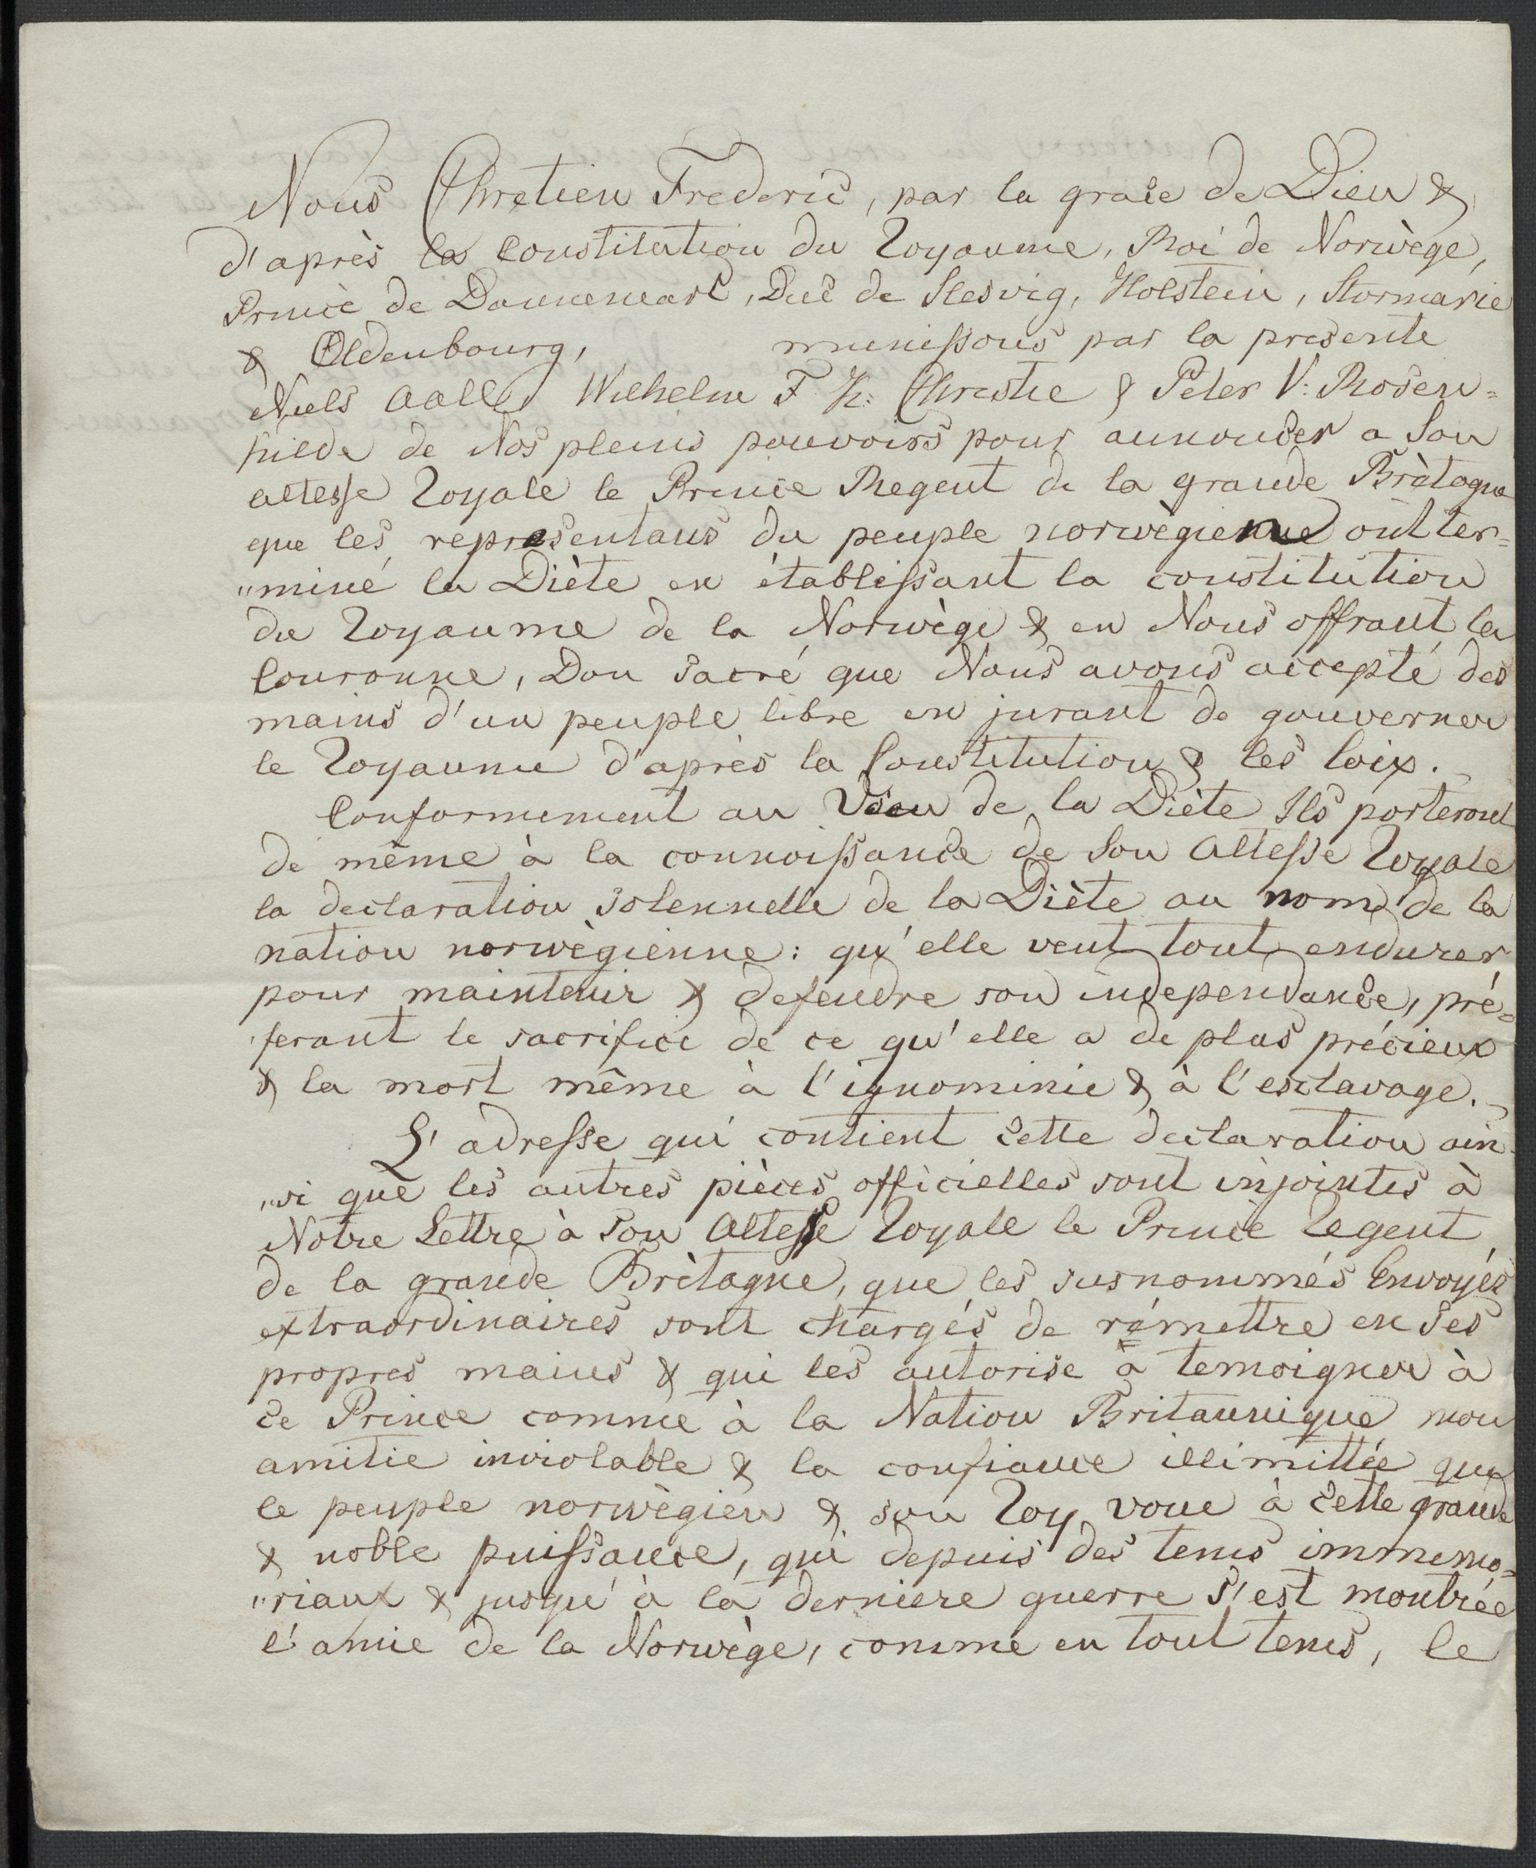 Nous Chretien Frederic, par la grace de Dieu &
d'après la Constitution du Royaume, Roi de Norwège,
Prince de Dannemarc, Duc de Slesvig, Holstein, Stormarie
& Oldenbourg, munissons par la presente
Niels Aall, Wilhelm F. K: Christie & Peter V: Rosen=
kilde de Nos pleins pouvoirs pour annoncer a Son
altesse Royale le Prince Regent de la grande Brètagne
que les representans du peuple norwègienne ont ter=
"miné la Diète en ètablissant la constitution
du Royaume de la Norwège & en Nous offrant la
Couronne, Don sacré que Nous avons accepté des
mains d'un peuple libre en jurant de gouverner
le Royaume d'après la Constitution & les loix.
Conformement au Voeu de la Diète Ils porteront
de même à la connoissance de Son Altesse Royale
la declaration solennelle de la Diète au nom de la
nation norwègienne: qu'elle veut tout endurer
pour maintenir & defendre son independance, pré=
ferant le sacrifice de ce qu'elle a de plus précieux
& la mort même à l'ignominie & à l'esclavage.
L'adresse qui contient cette declaration ain
"si que les autres pièces officielles sont injointes à
Notre Lettre à Son Altesse Royale le Prince Regent
de la grande Brètagne, que les susnommés Envoyés
extraordinaires sont chargés de rémettre en Ses
propres mains & qui les autorise à temoigner à
ce Prince comme à la Nation Britannique mon
amitie inviolable & la confiance illimittée que
le peuple norwègien & son Roy voue à cette grande
& noble puissance, qui depuis des tems immemo=
"riaux & jusqu'à la derniere guerre s'est montrée
l'amie de la Norwège, comme en tout tems, le